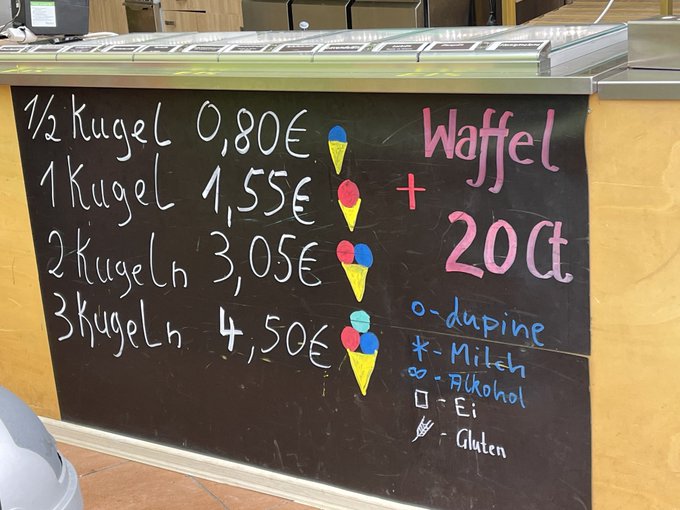 1/2 Kugel 0,80€
1 Kugel 1,55€
2 Kugeln 3,05€
3 Kugeln 4,50€
Waffel
+
20Ct
o - Lupine
* - Milch
∞ - Alkohol
□ - Ei
- Gluten